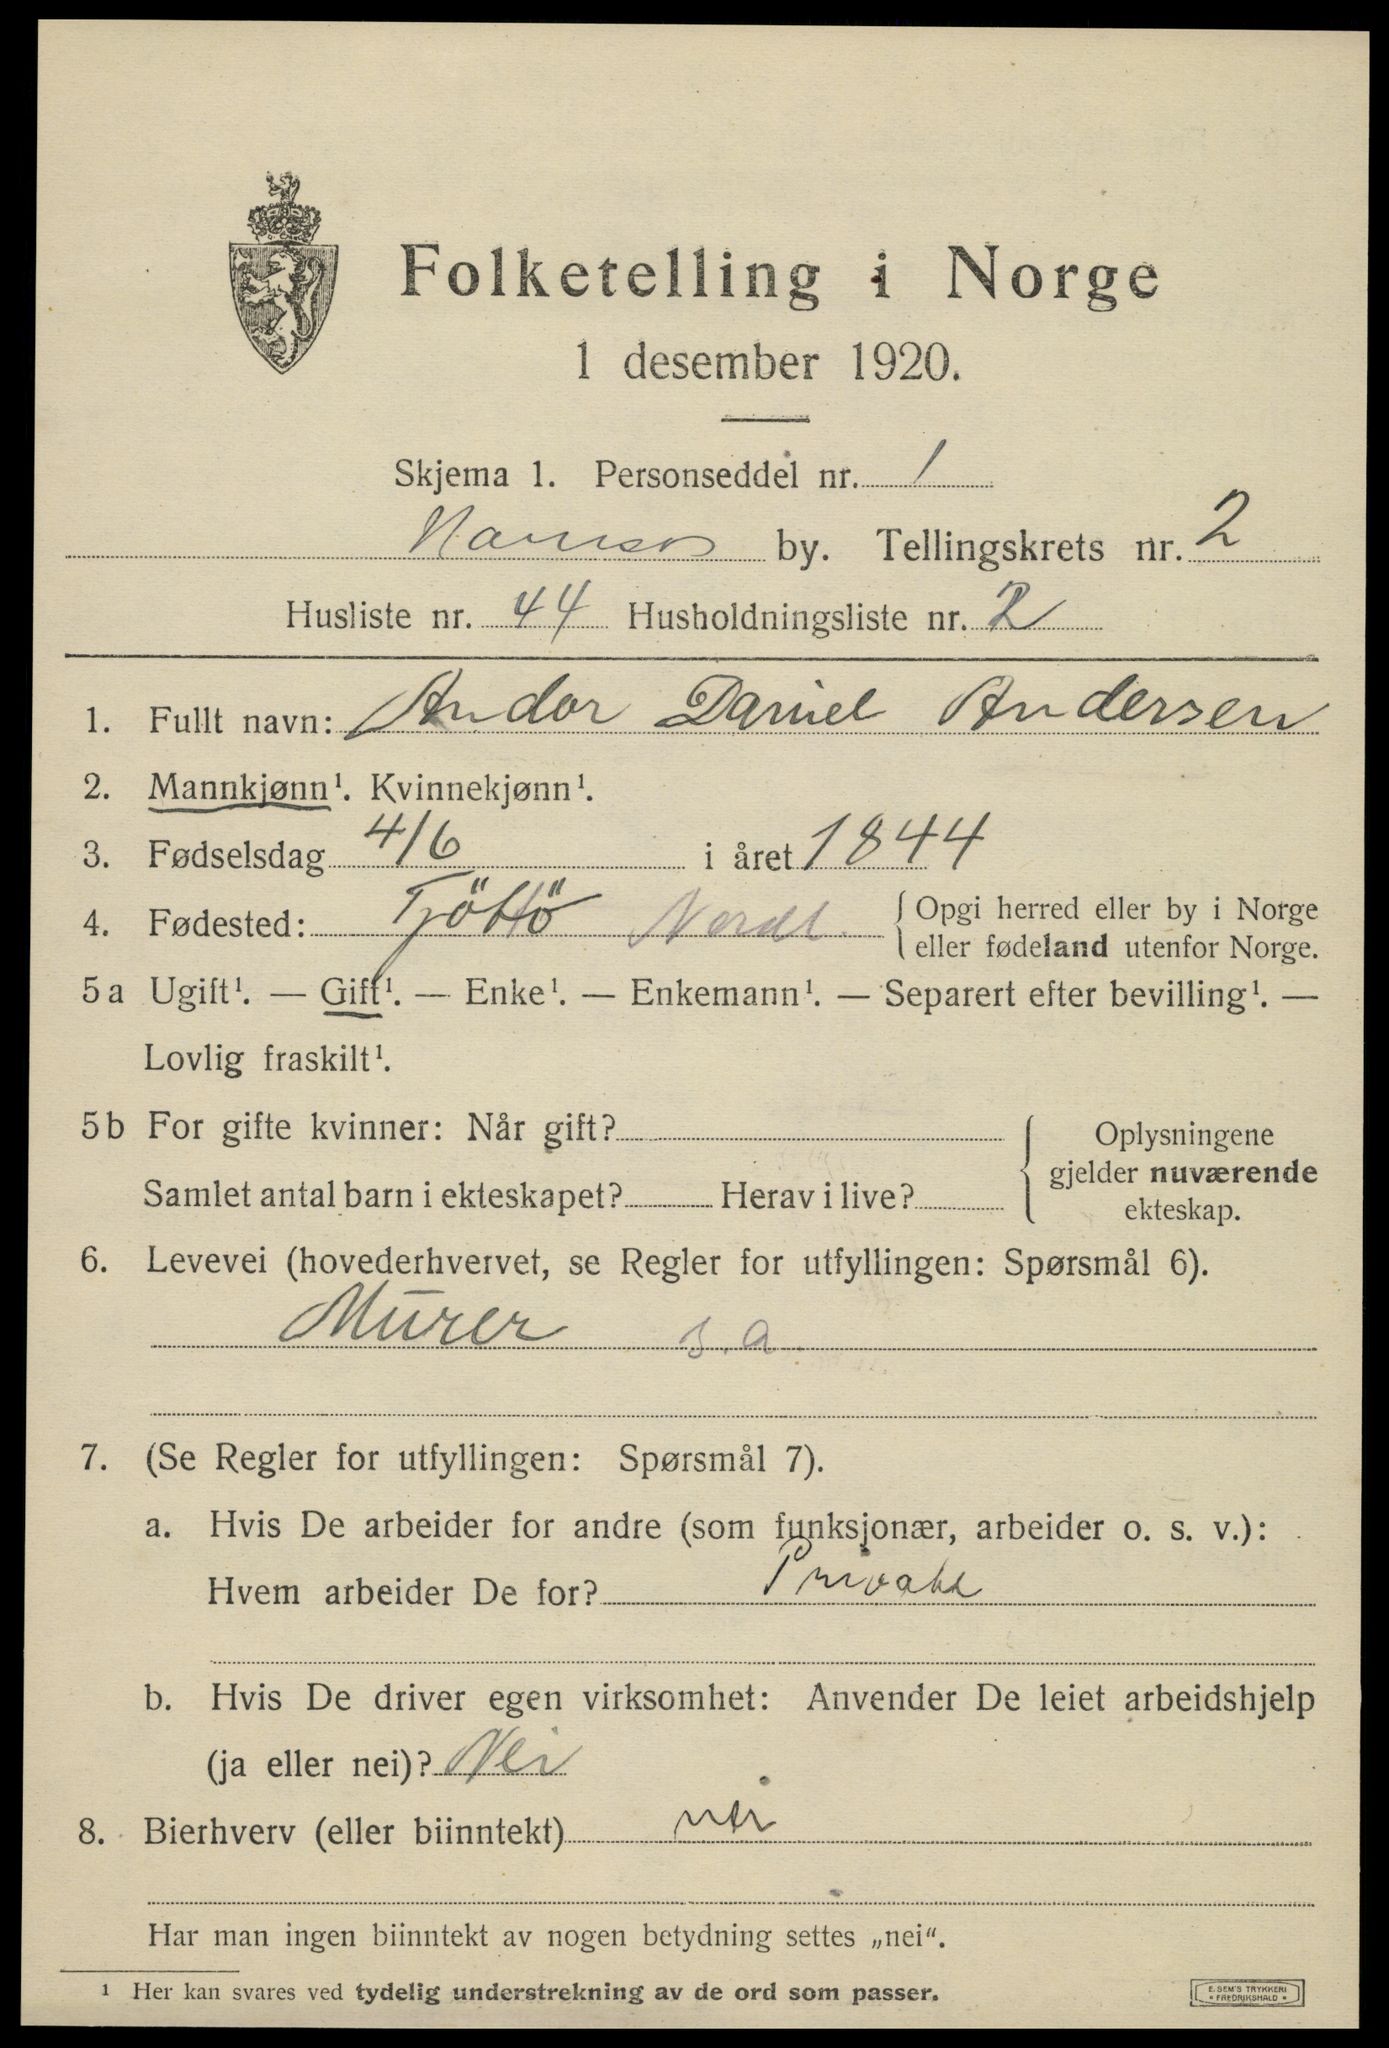 Folketelling i Norge
1 desember 1920.
Skjema 1. Personseddel nr. 1
Namsos by. Tellingskrets nr. 2
Husliste nr. 44 Husholdningsliste nr. 2
1. Fullt navn: Andor Daniel Andersen
2. Mannkjønn¹. Kvinnekjønn¹.
3. Fødselsdag 4/6 i året 1844
4. Fødested: Tjöttö Nordl. { Opgi herred eller by i Norge
eller fødeland utenfor Norge.
5 a Ugift¹. — Gift¹. — Enke¹. — Enkemann¹. — Separert efter bevilling¹. —
Lovlig fraskilt¹.
5 b For gifte kvinner: Når gift?
Samlet antal barn i ekteskapet? Herav i live?
Oplysningene
gjelder nuværende
ekteskap.
6. Levevei (hovederhvervet, se Regler for utfyllingen: Spørsmål 6).
Murer s.a
7. (Se Regler for utfyllingen: Spørsmål 7).
a. Hvis De arbeider for andre (som funksjonær, arbeider o. s. v.):
Hvem arbeider De for? Privatd
b. Hvis De driver egen virksomhet: Anvender De leiet arbeidshjelp
(ja eller nei)? Nei
8. Bierhverv (eller biinntekt) nei
Har man ingen biinntekt av nogen betydning settes „nei“.
¹ Her kan svares ved tydelig understrekning av de ord som passer.
E. SEM'S TRYKKERI
• FREDRIKSHALD •